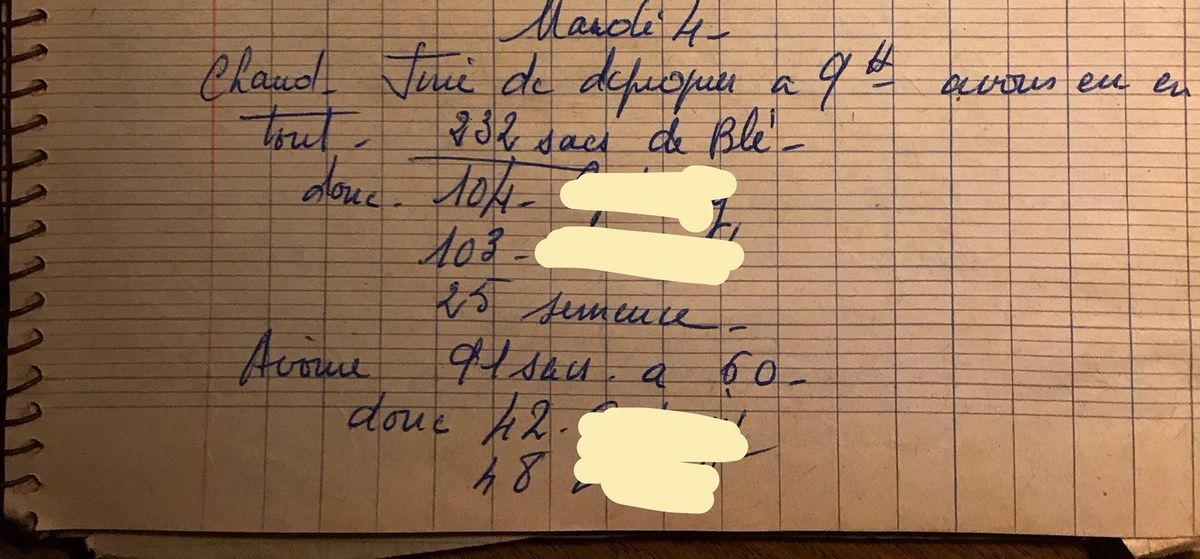 Mardi 4-
Chaud- Fini de depiquer a 9 H avons eu en
tout- 232 sacs de Blé-
donc- 104-
103-
25 semence-
Avoine 91 sacs. a 60-
donc 42.
48